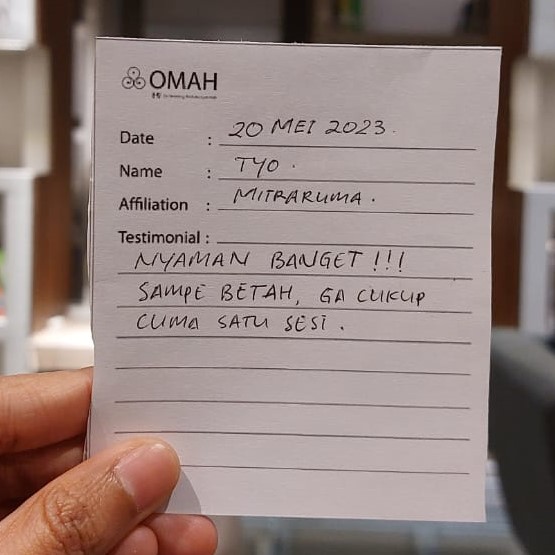 OMAH
Date : 20 MEI 2023.
Name : TYO.
Affiliation : MITRARUMA.
Testimonial :
NYAMAN BANGET !!!
SAMPE BETAH, GA CUKUP
CUMA SATU SESI.